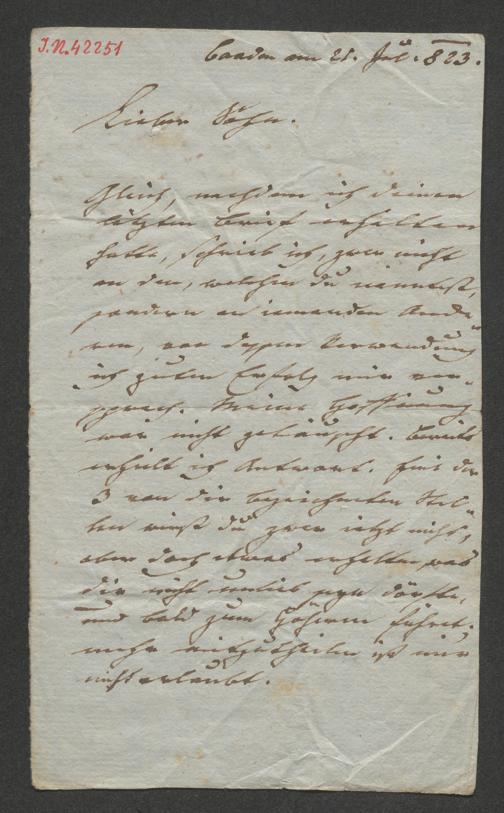 J.N. 42251
Baaden am 21. Jul. 823.
Lieber Sohn.
Gleich, nachdem ich deinen
letzten Brief erhalten
hatte, schrieb ich, zwar nicht
an den, welchen du nanntest,
sondern an jemanden Ande-
ren, von dessen Verwendung
ich guten Erfolg mir ver-
sprach. Meine Hoffnung
war nicht getäuscht. Bereits
erhielt ich Antwort. Eine der
3 von dir bezeichneten Stel-
len wirst du zwar jetzt nicht,
aber doch etwas erhalten, was
dir nicht unlieb seyn dörfte,
und bald zum Höheren führet.
mehr mitzutheilen ist mir
nicht erlaubt.